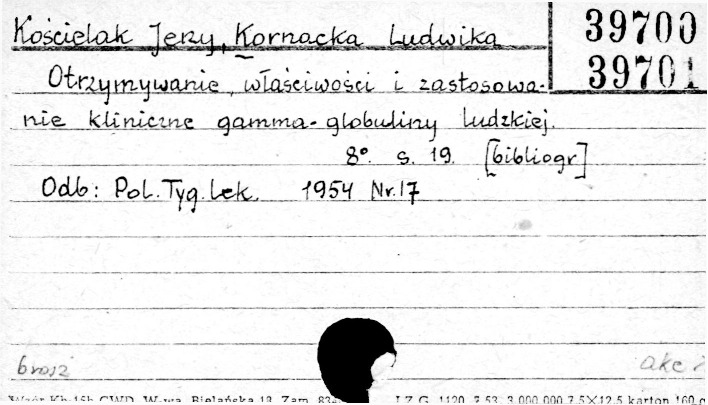 Kościelak Jerzy, Kornacka Ludwika
39700
39701
Otrzymywanie, właściwości i zastosowa-
nie kliniczne gamma-globuliny ludzkiej.
8°. s. 19. [bibliogr]
Odb: Pol. Tyg. Lek. 1954 Nr. 17
brosz
akc
Wzór Kb-15b CWD, W-wa, Bielańska 18, Zam. I.Z.G. 1120 7.53. 3.000.000 7.5×12.5 karton 160